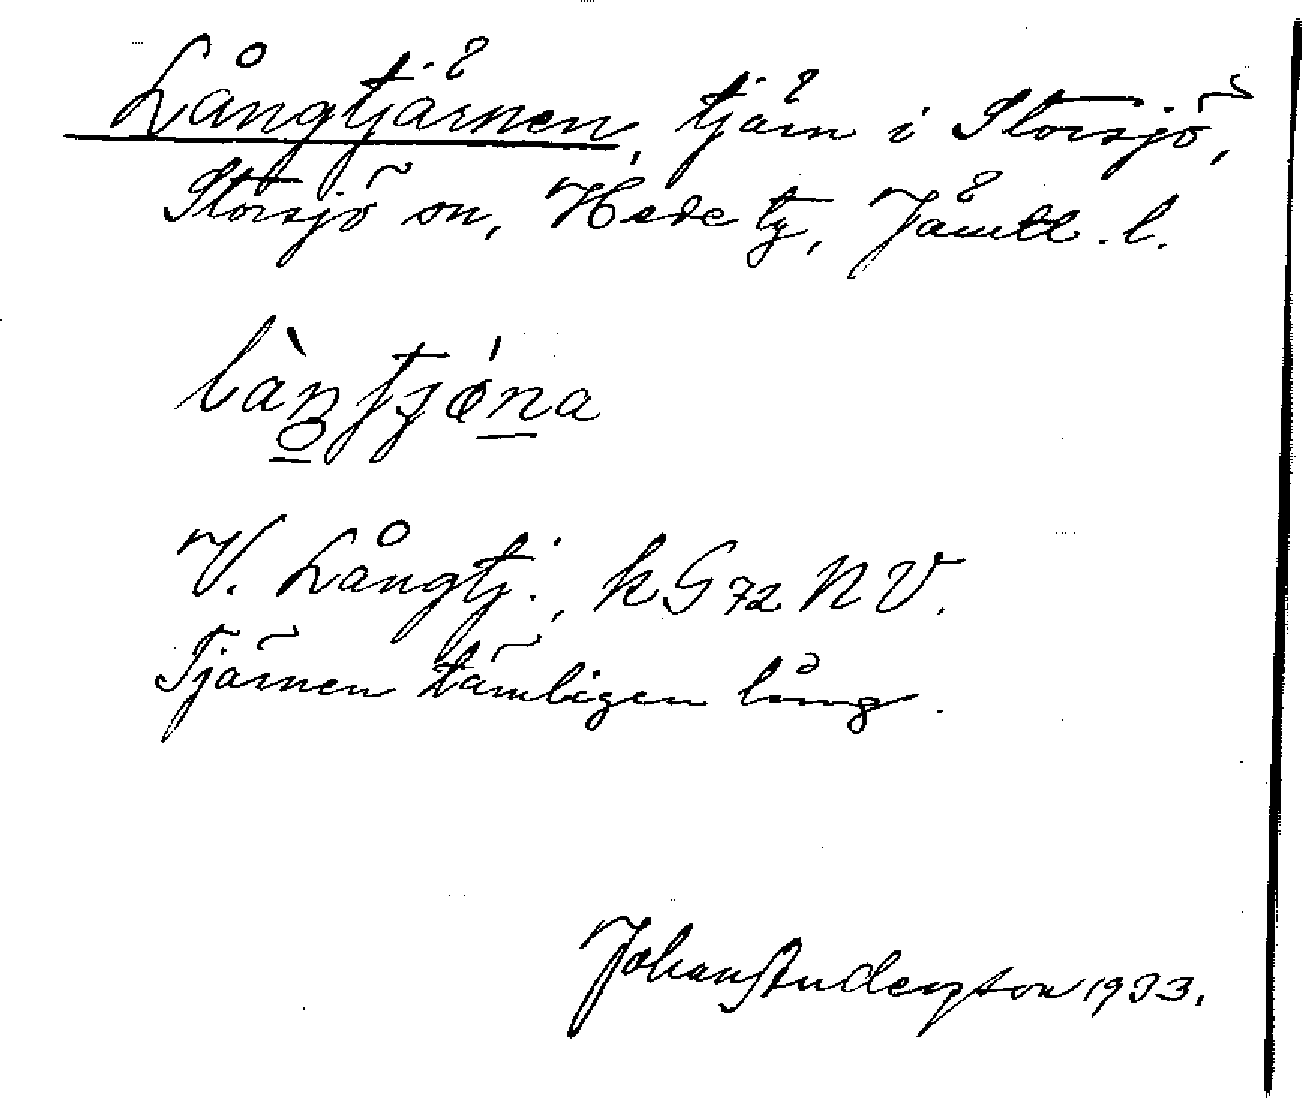 Långtjärnen, tjärn i Storsjö,
Storsjö sn, Hede tg, Jämtl. l.
V. Långtj., k G72 NV.
Tjärnen tämligen lång.
Johan Anderzson 1933.